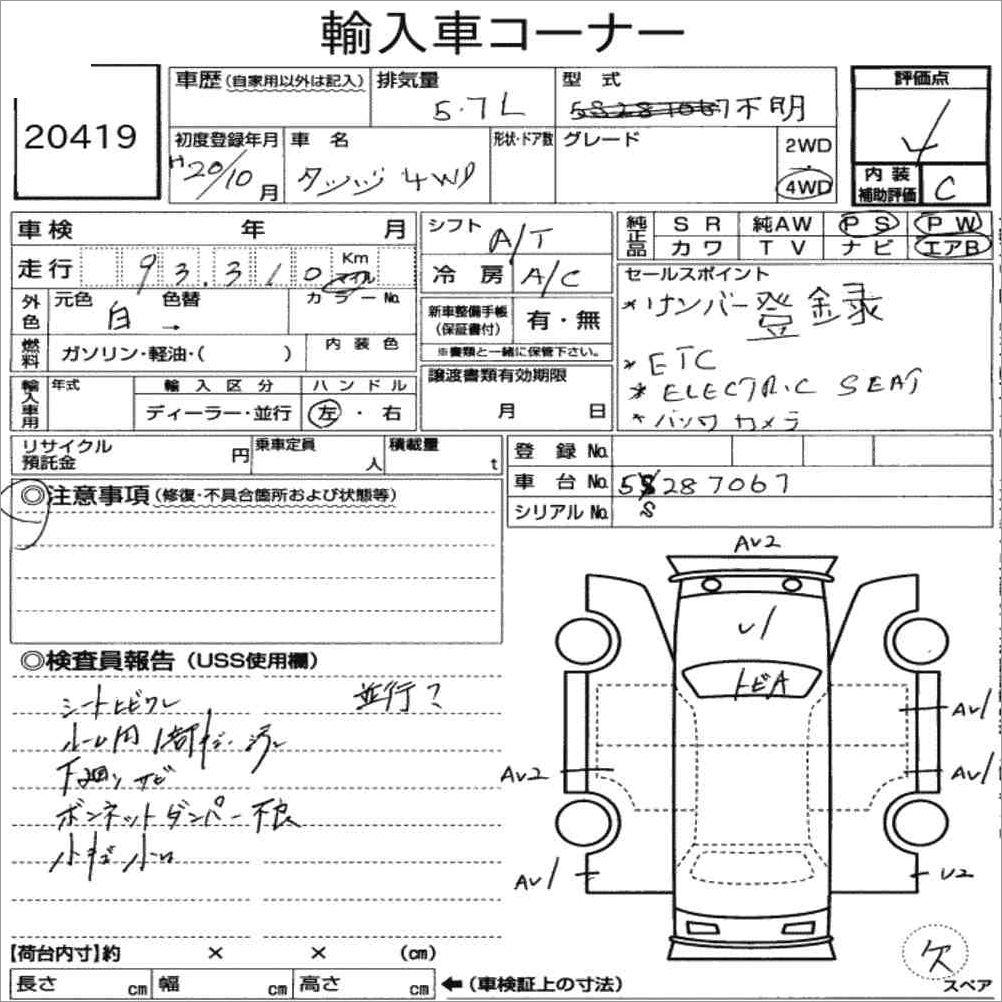 輸入車コーナー
20419
車歴 (自家用以外は記入)
排気量
5.7L
型式
5S287067不明
評価点
4
初度登録年月
H20/10月
車名
ダッジ 4WD
形状・ドア数
グレード
2WD
4WD
内装
補助評価
C
車検 年 月
シフト
A/T
純正品
SR 純AW PS PW
カワ TV ナビ エアB
走行 93,310 Km マイル
冷房
A/C
セールスポイント
*ナンバー登録
*ETC
*ELECTRIC SEAT
*バックカメラ
外色
元色 色替
白 →
カラーNo.
新車整備手帳
(保証書付)
有・無
※書類と一緒に保管下さい。
燃料
ガソリン・軽油・( )
内装色
輸入車用
年式
輸入区分
ディーラー・並行
ハンドル
左・右
譲渡書類有効期限
月 日
リサイクル
預託金
円
乗車定員
人
積載量
t
登録No.
車台No. 5S287067
シリアルNo. S
◎注意事項 (修復・不具合箇所および状態等)
◎検査員報告 (USS使用欄)
シートヒビワレ 並行?
ルーム内 キズ・汚レ
下回りサビ
ボンネットダンパー不良
小キズ小凹
AU2
U1
トビA
AU1
AU2
AU1
AU1
U2
【荷台内寸】約 × × (cm)
長さ cm 幅 cm 高さ cm
←(車検証上の寸法)
欠
スペア